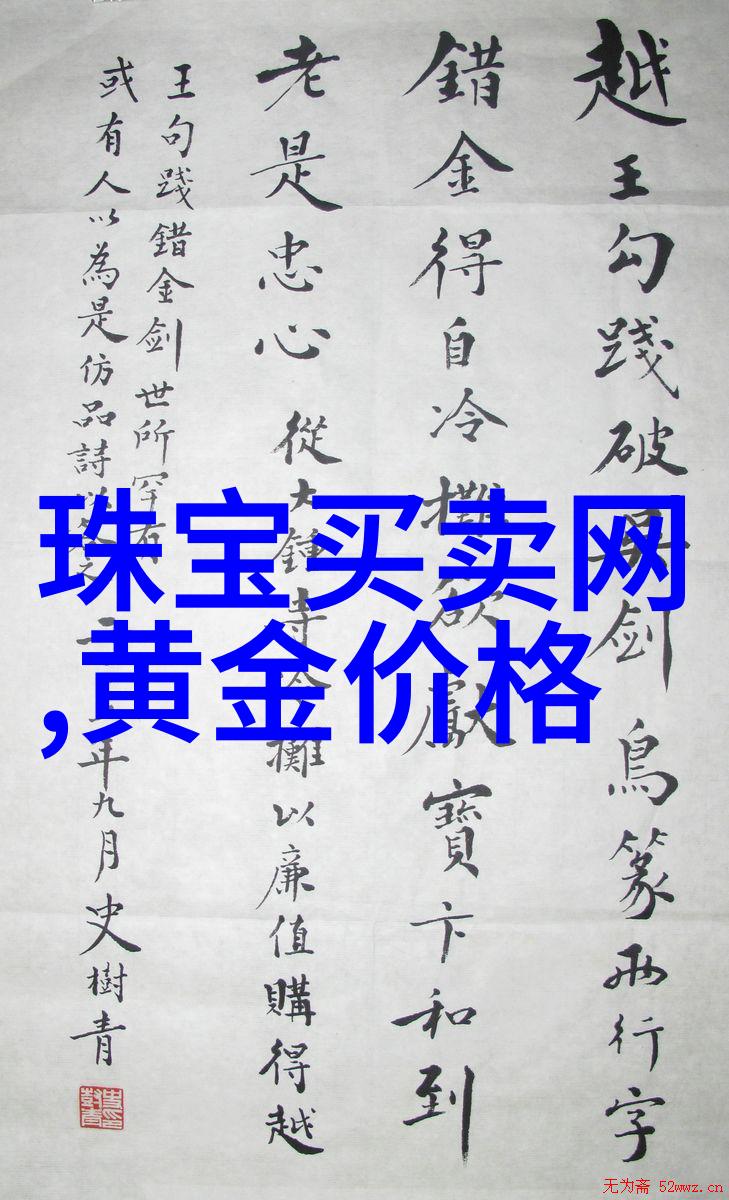 越王勾踐破吴剑鳥篆兩行字
錯金得自冷攤欲獻寶卞和到
老是忠心 從大鍾寺冷攤以廉值購得越
王句踐錯金剑世所罕有
或有人以為是仿品詩以
年九月史樹青
珠宝买卖网
,黄金价格
无为斋 52wwz.cn